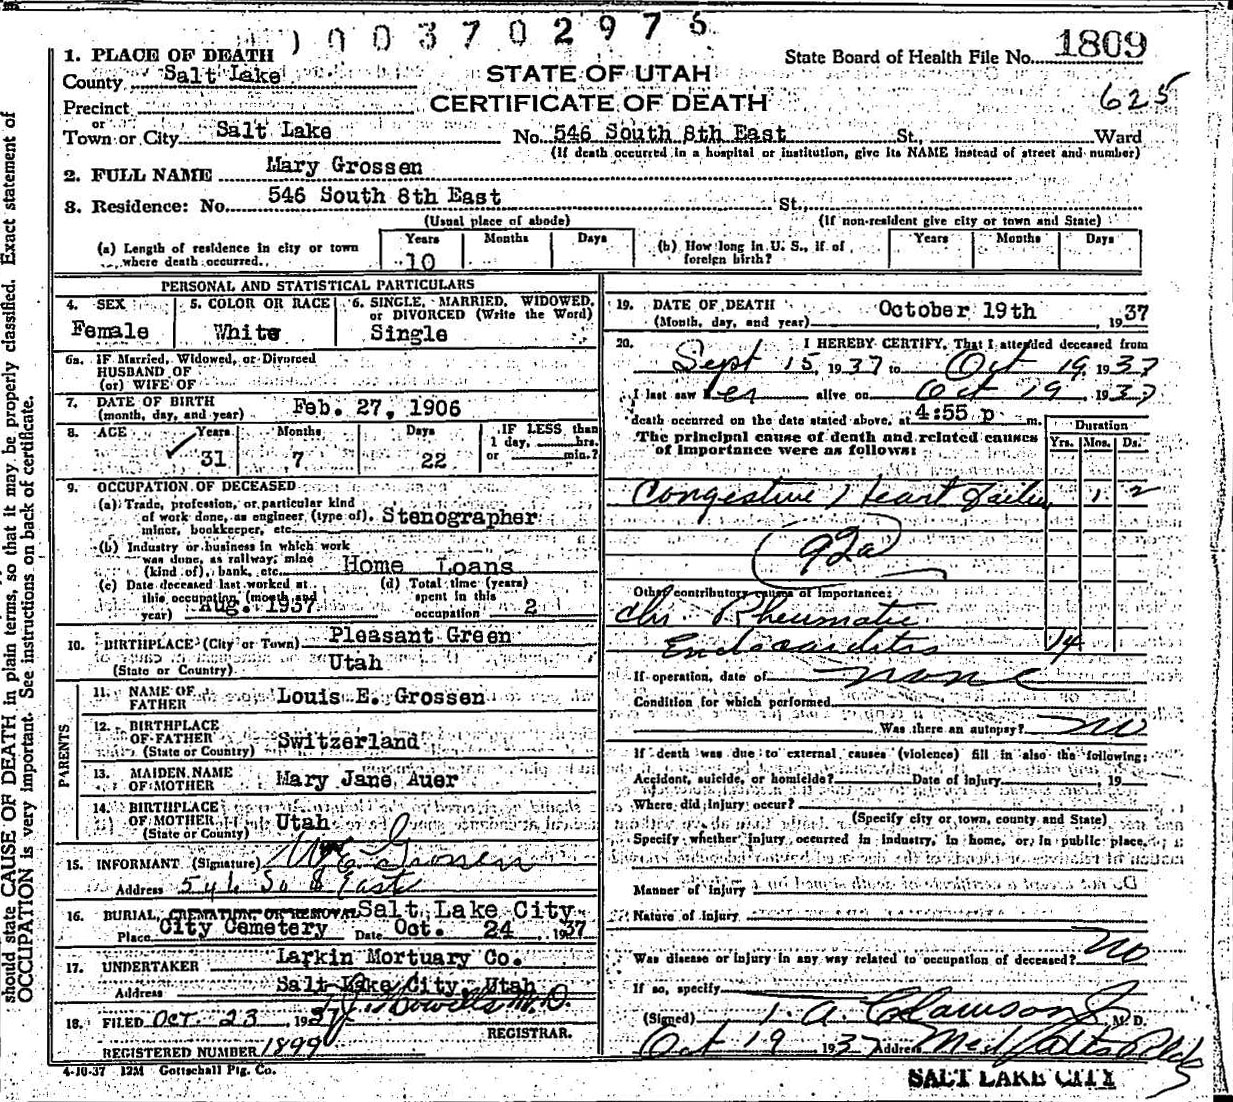 1003702975
1. PLACE OF DEATH
State Board of Health File No. 1809
County Salt Lake
STATE OF UTAH
625
Precinct
CERTIFICATE OF DEATH
or
Town or City Salt Lake No. 546 South 8th East St., Ward
(If death occurred in a hospital or institution, give its NAME instead of street and number)
2. FULL NAME Mary Grossen
3. Residence: No. 546 South 8th East St.,
(Usual place of abode) (If non-resident give city or town and State)
(a) Length of residence in city or town where death occurred. Years 10 Months Days
(b) How long in U. S., if of foreign birth? Years Months Days
PERSONAL AND STATISTICAL PARTICULARS
4. SEX Female
5. COLOR OR RACE White
6. SINGLE, MARRIED, WIDOWED, or DIVORCED (Write the Word) Single
6a. IF Married, Widowed, or Divorced
HUSBAND OF
(or) WIFE OF
7. DATE OF BIRTH
(month, day, and year) Feb. 27, 1906
8. AGE Years 31 Months 7 Days 22 IF LESS than 1 day, hrs. or min.?
9. OCCUPATION OF DECEASED
(a) Trade, profession, or particular kind
of work done, as engineer (type of), Stenographer
miner, bookkeeper, etc.
(b) Industry or business in which work
was done, as railway, mine
(kind of), bank, etc. Home Loans
(c) Date deceased last worked at this occupation (month and year) Aug. 1937
(d) Total time (years) spent in this occupation 2
10. BIRTHPLACE (City or Town) Pleasant Green
(State or Country) Utah
PARENTS
11. NAME OF FATHER Louis E. Grossen
12. BIRTHPLACE OF FATHER (State or Country) Switzerland
13. MAIDEN NAME OF MOTHER Mary Jane Auer
14. BIRTHPLACE OF MOTHER (State or Country) Utah
15. INFORMANT (Signature) Grossen
Address So 8 East
16. BURIAL, CREMATION, OR REMOVAL Salt Lake City
Place City Cemetery Date Oct. 24, 1937
17. UNDERTAKER Larkin Mortuary Co.
Address Salt Lake City, Utah
18. FILED Oct. 23, 1937 Howells M.D.
REGISTRAR.
REGISTERED NUMBER 1899
4-10-37 12M Gottschall Ptg. Co.
19. DATE OF DEATH
(Month, day, and year) October 19th 1937
20. I HEREBY CERTIFY, That I attended deceased from
Sept 15, 1937 to Oct 19, 1937
I last saw her alive on Oct 19, 1937
death occurred on the date stated above, at 4:55 p m.
The principal cause of death and related causes
of importance were as follows:
Duration
Yrs. Mos. Ds.
Congestive Heart Failure 1 2
92a
Other contributory causes of importance:
Chr. Rheumatic
Endocarditis 14
If operation, date of none
Condition for which performed
Was there an autopsy? no
If death was due to external causes (violence) fill in also the following:
Accident, suicide, or homicide? Date of injury, 19
Where did injury occur?
(Specify city or town, county and State)
Specify whether injury occurred in industry, in home, or in public place.
Manner of injury
Nature of injury
Was disease or injury in any way related to occupation of deceased? no
If so, specify
(Signed) T. A. Clawson Jr M. D.
Oct 19 1937 Address Med Arts Bldg
SALT LAKE CITY
should state CAUSE OF DEATH in plain terms, so that it may be properly classified. Exact statement of
OCCUPATION is very important. See instructions on back of certificate.